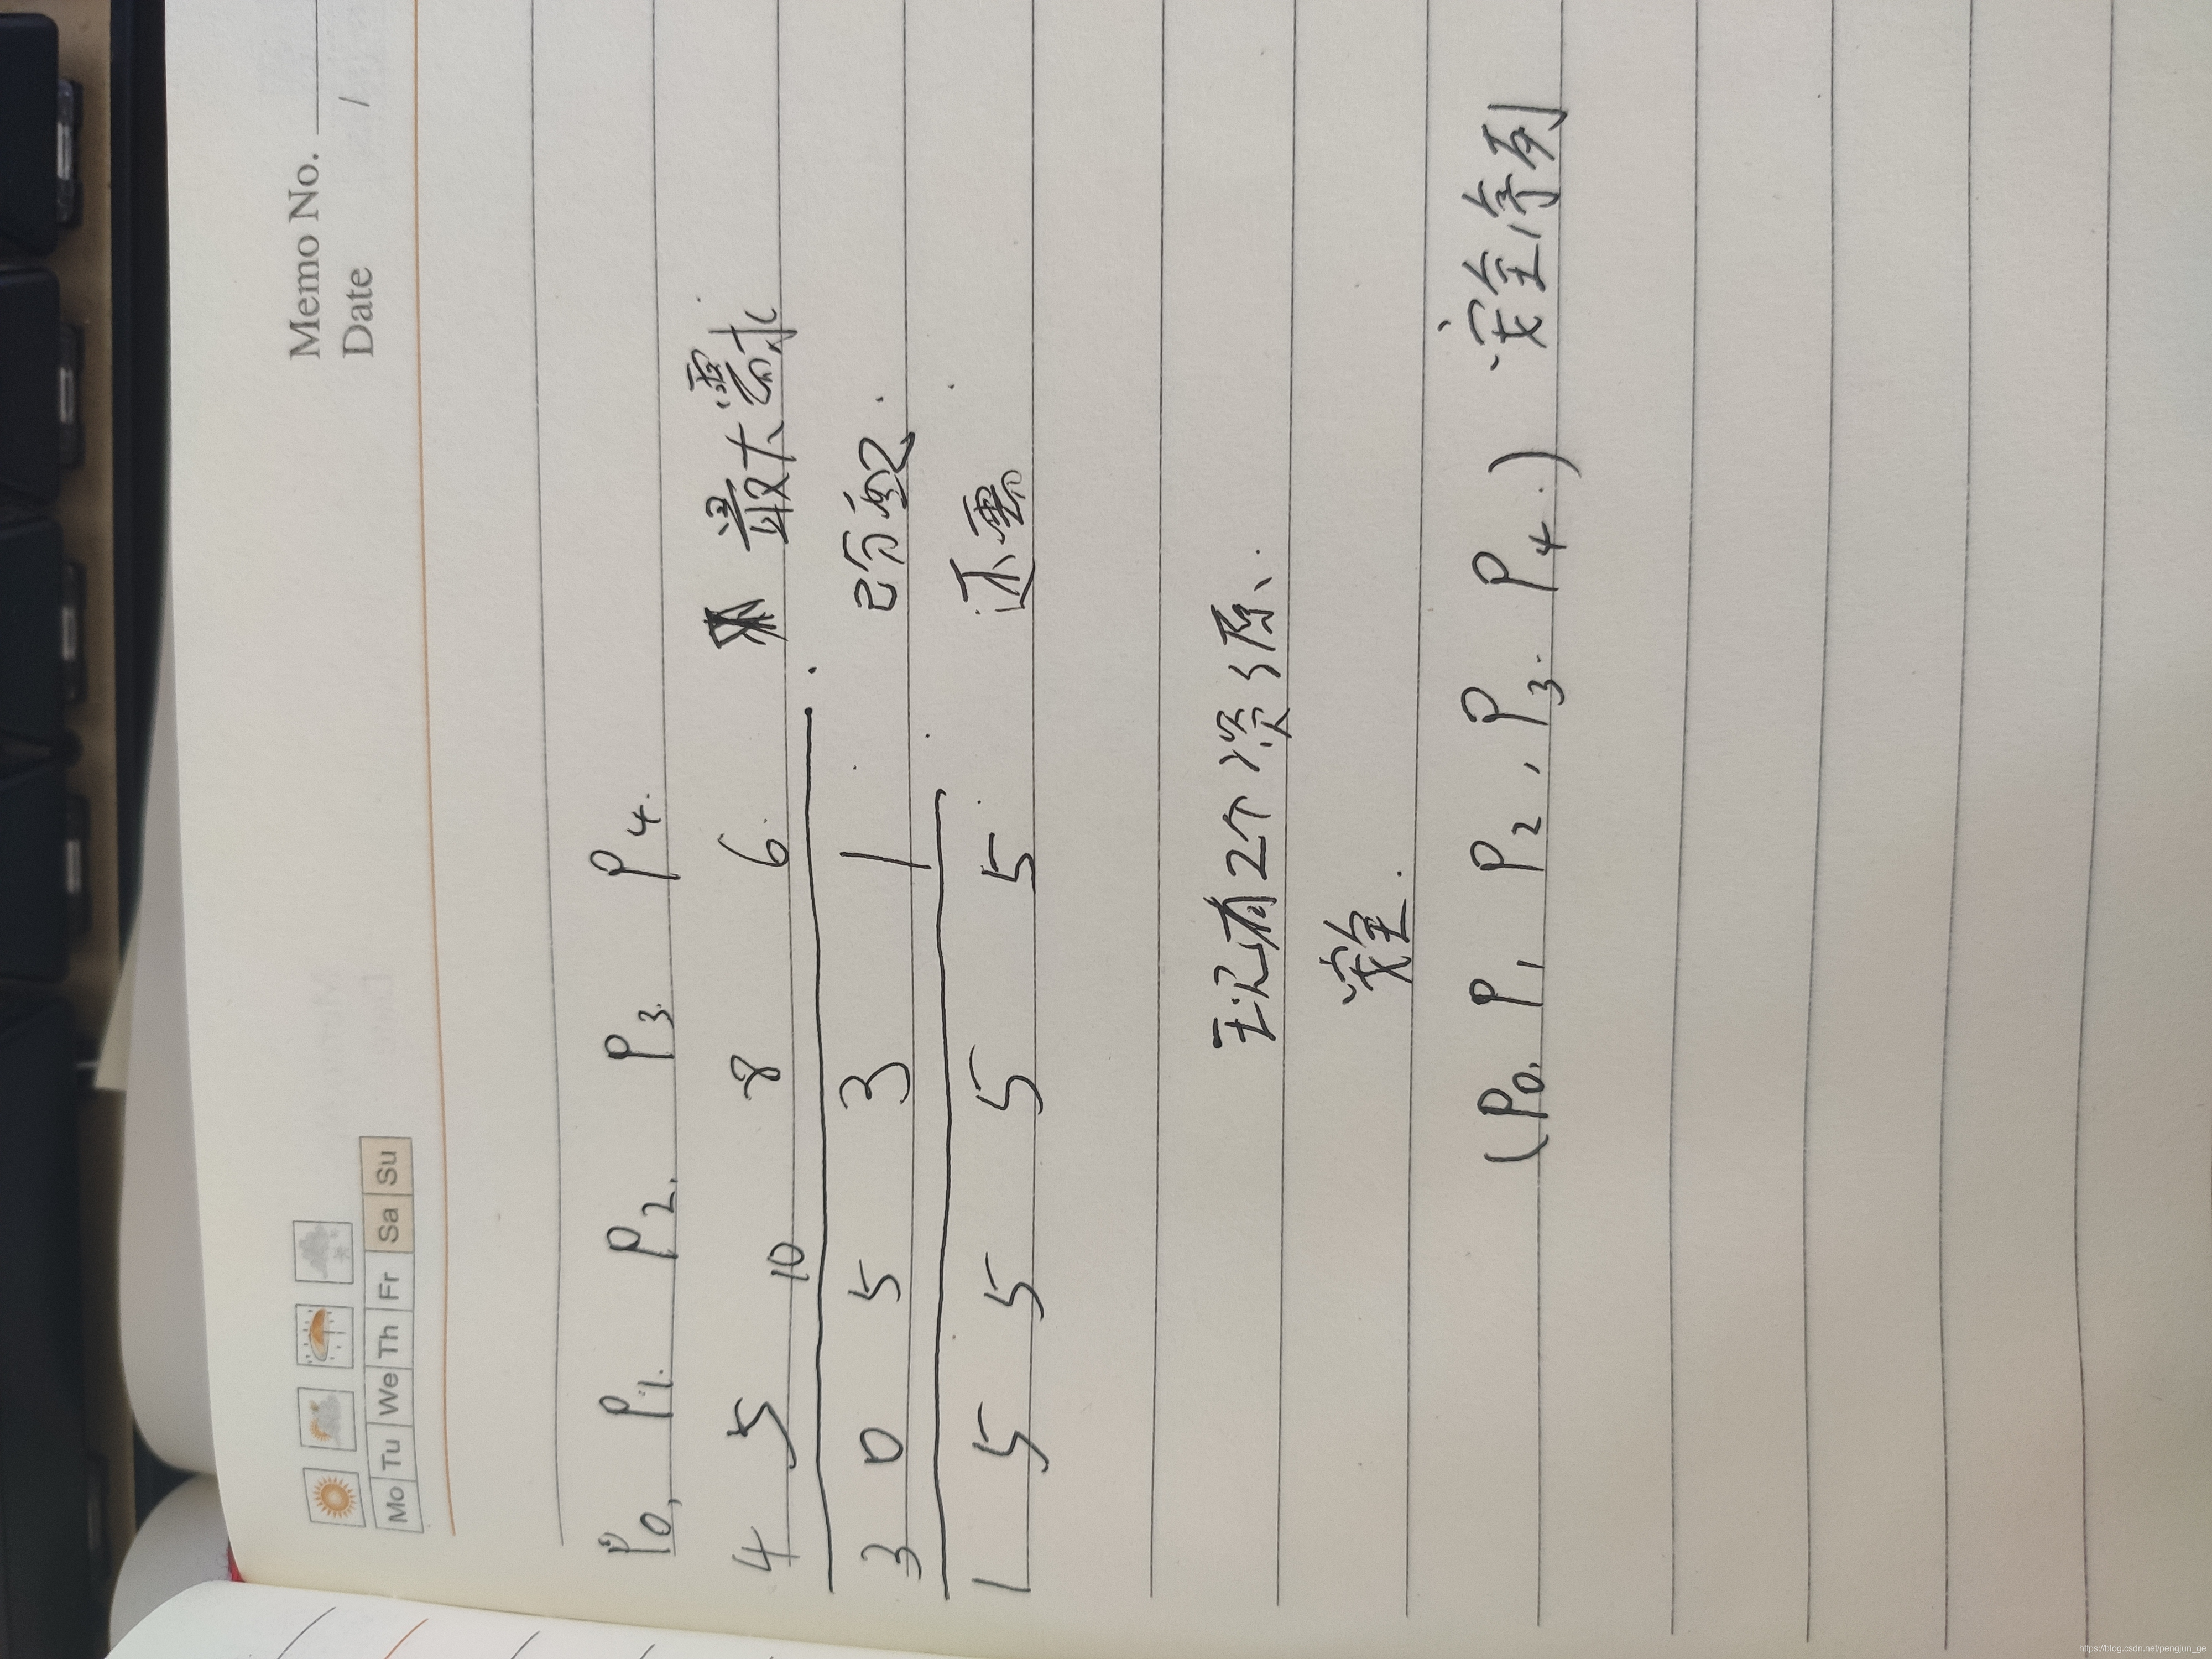 Memo No.
Date /
Mo Tu We Th Fr Sa Su
P0, P1. P2. P3. P4.
4 5 10 8 6. 最大需求
3 0 5 3 1 已分配.
1 5 5 5 5 还需
现有2个资源.
安全.
(P0. P1 P2, P3. P4.) 安全序列
https://blog.csdn.net/pengjun_ge